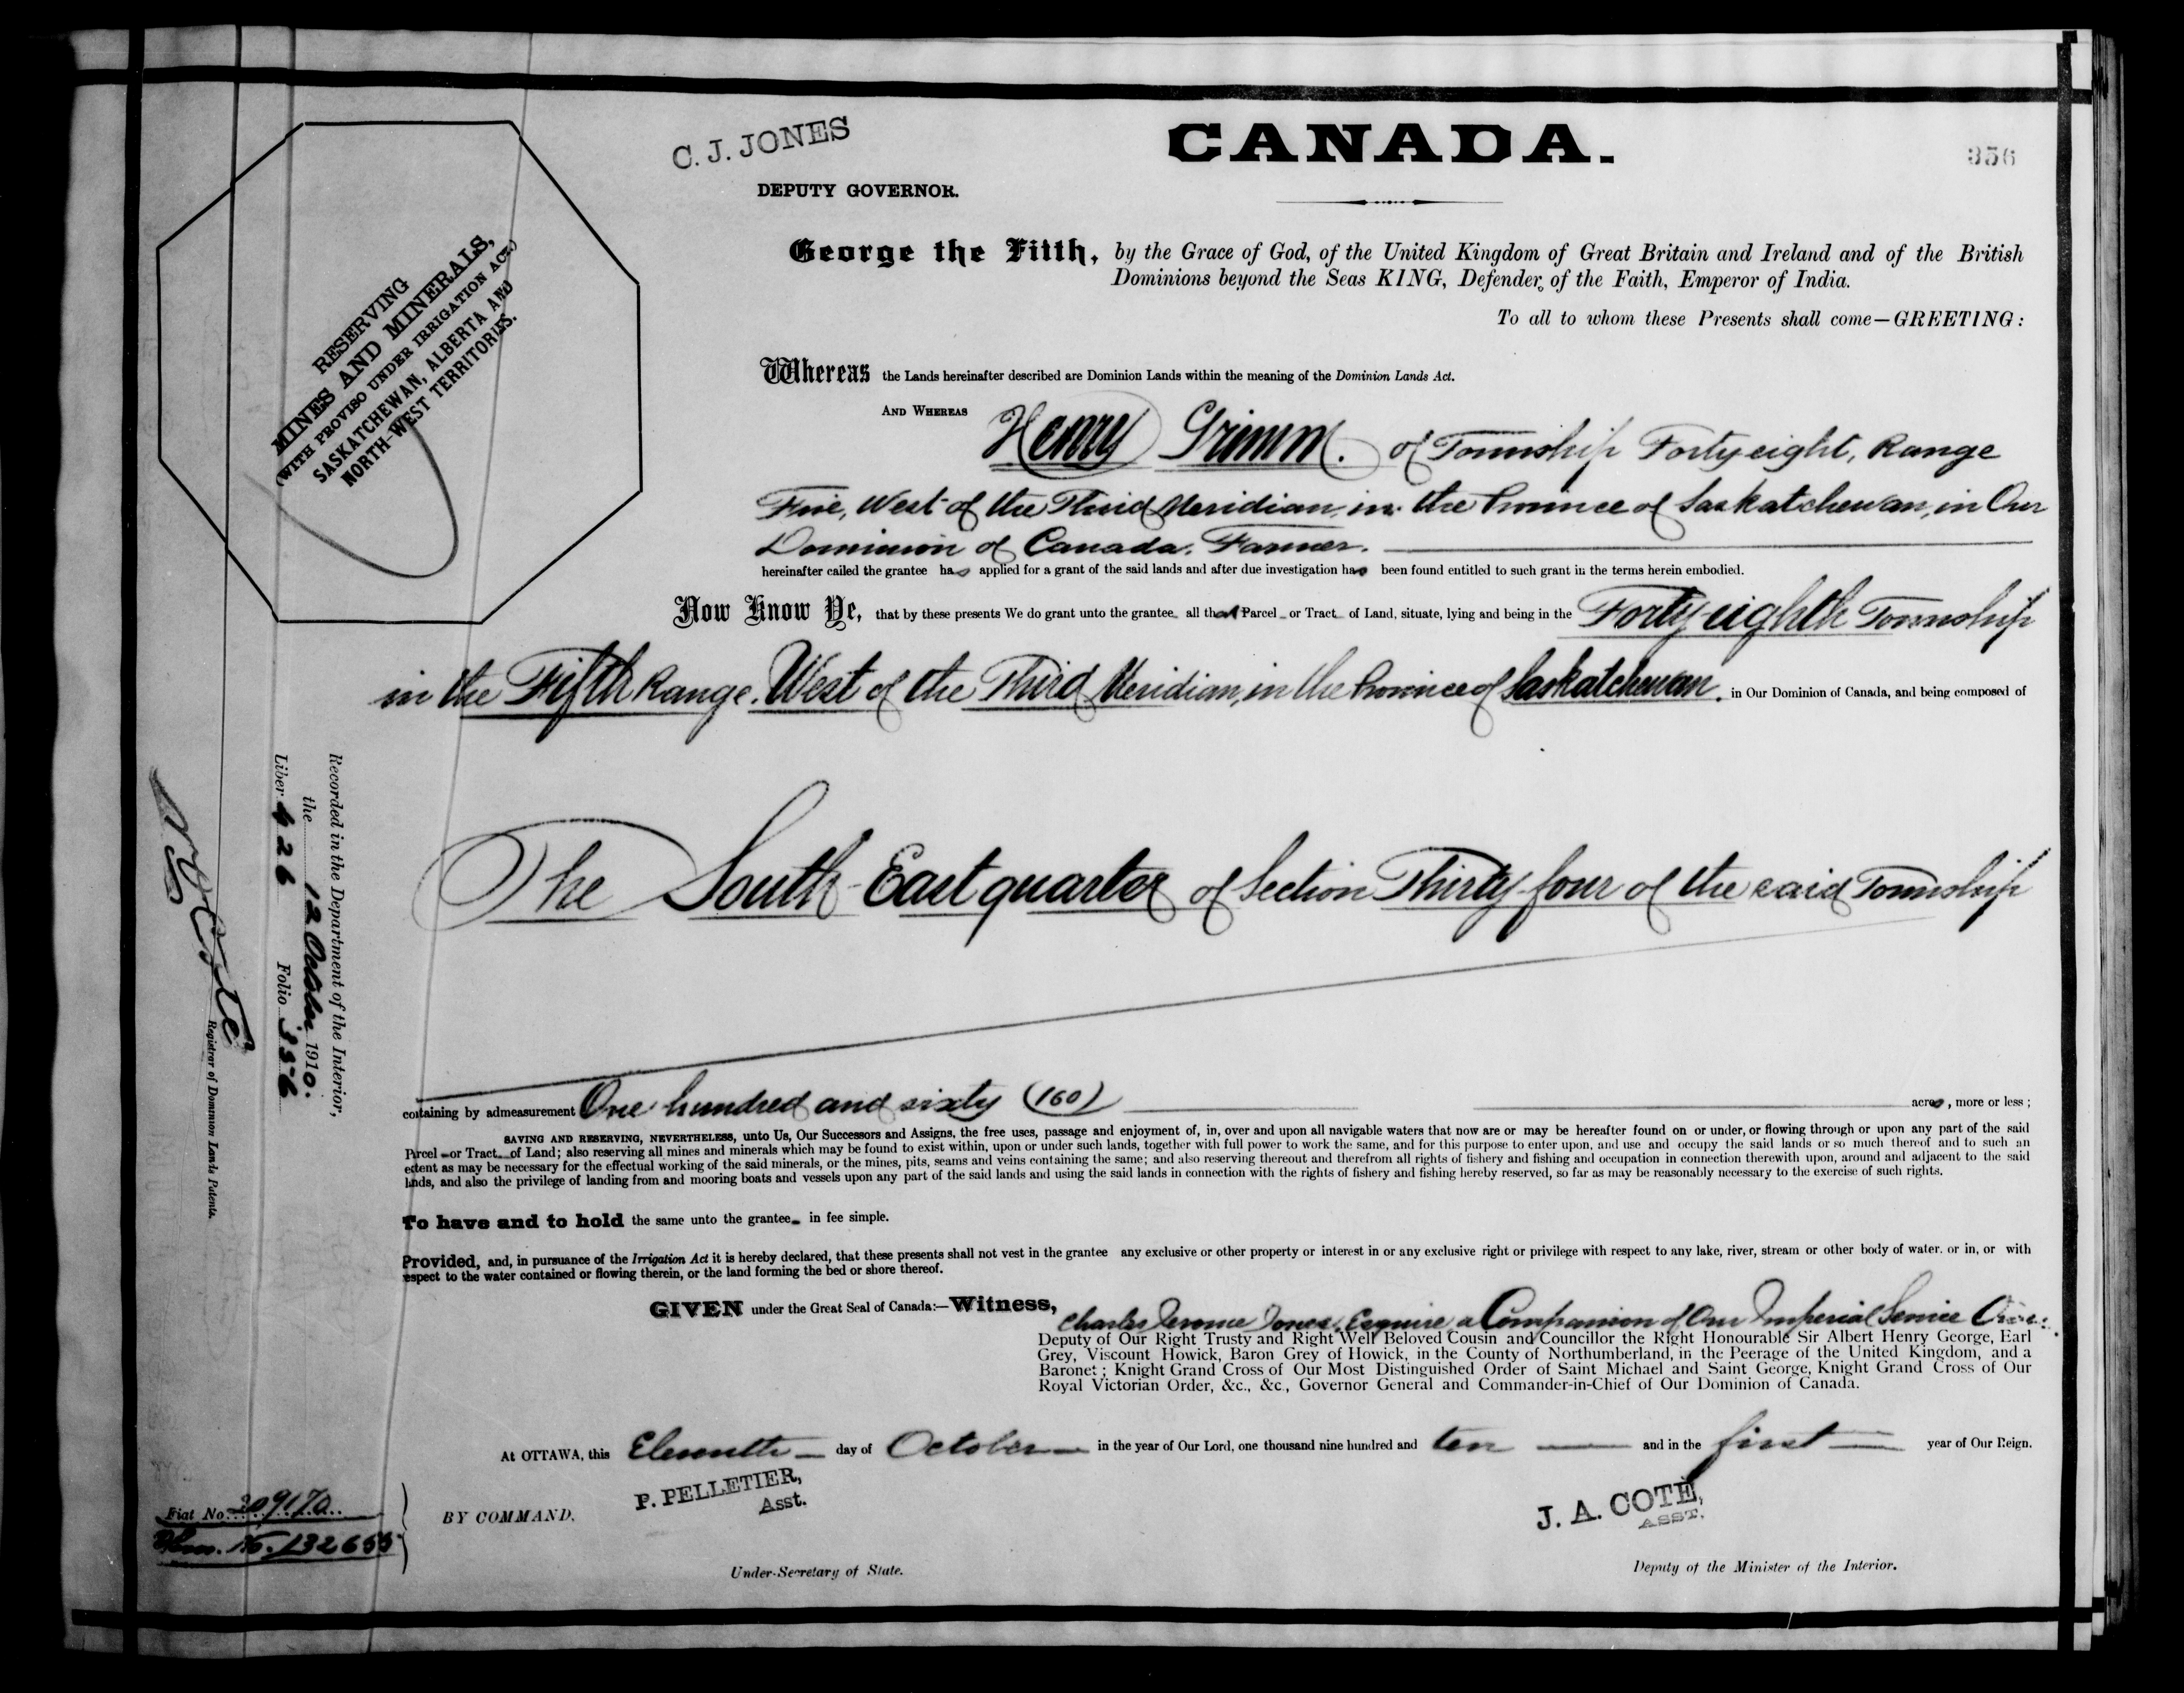 C. J. JONES
DEPUTY GOVERNOR.
CANADA.
356
RESERVING
MINES AND MINERALS,
(WITH PROVISO UNDER IRRIGATION ACT.)
SASKATCHEWAN, ALBERTA AND
NORTH-WEST TERRITORIES.
George the Fifth, by the Grace of God, of the United Kingdom of Great Britain and Ireland and of the British
Dominions beyond the Seas KING, Defender of the Faith, Emperor of India.
To all to whom these Presents shall come—GREETING:
Whereas the Lands hereinafter described are Dominion Lands within the meaning of the Dominion Lands Act.
AND WHEREAS Henry Grimm. of Township Forty eight, Range
Five, West of the Third Meridian, in the Province of Saskatchewan, in Our
Dominion of Canada. Farmer.
hereinafter called the grantee has applied for a grant of the said lands and after due investigation has been found entitled to such grant in the terms herein embodied.
Now Know Ye, that by these presents We do grant unto the grantee all that Parcel or Tract of Land, situate, lying and being in the Forty-eighth Township
in the Fifth Range, West of the Third Meridian, in the Province of Saskatchewan, in Our Dominion of Canada, and being composed of
The South East quarter of Section Thirty-four of the said Township
containing by admeasurement One hundred and sixty (160) acres, more or less;
SAVING AND RESERVING, NEVERTHELESS, unto Us, Our Successors and Assigns, the free uses, passage and enjoyment of, in, over and upon all navigable waters that now are or may be hereafter found on or under, or flowing through or upon any part of the said
Parcel or Tract of Land; also reserving all mines and minerals which may be found to exist within, upon or under such lands, together with full power to work the same, and for this purpose to enter upon, and use and occupy the said lands or so much thereof and to such an
extent as may be necessary for the effectual working of the said minerals, or the mines, pits, seams and veins containing the same; and also reserving thereout and therefrom all rights of fishery and fishing and occupation in connection therewith upon, around and adjacent to the said
lands, and also the privilege of landing from and mooring boats and vessels upon any part of the said lands and using the said lands in connection with the rights of fishery and fishing hereby reserved, so far as may be reasonably necessary to the exercise of such rights.
To have and to hold the same unto the grantee in fee simple.
Provided, and, in pursuance of the Irrigation Act it is hereby declared, that these presents shall not vest in the grantee any exclusive or other property or interest in or any exclusive right or privilege with respect to any lake, river, stream or other body of water. or in, or with
respect to the water contained or flowing therein, or the land forming the bed or shore thereof.
GIVEN under the Great Seal of Canada:—Witness, Charles Jerome Jones, Esquire, a Companion of Our Imperial Service
Deputy of Our Right Trusty and Right Well Beloved Cousin and Councillor the Right Honourable Sir Albert Henry George, Earl
Grey, Viscount Howick, Baron Grey of Howick, in the County of Northumberland, in the Peerage of the United Kingdom, and a
Baronet; Knight Grand Cross of Our Most Distinguished Order of Saint Michael and Saint George, Knight Grand Cross of Our
Royal Victorian Order, &c., &c., Governor General and Commander-in-Chief of Our Dominion of Canada.
At OTTAWA, this Eleventh day of October in the year of Our Lord, one thousand nine hundred and ten and in the first year of Our Reign.
BY COMMAND,
P. PELLETIER,
Asst.
Under-Secretary of State.
J. A. COTÉ,
ASST.
Deputy of the Minister of the Interior.
Recorded in the Department of the Interior,
the 12 October 1910.
Liber 426 Folio 356
Registrar of Dominion Lands Patents.
Fiat No. 209170
132655